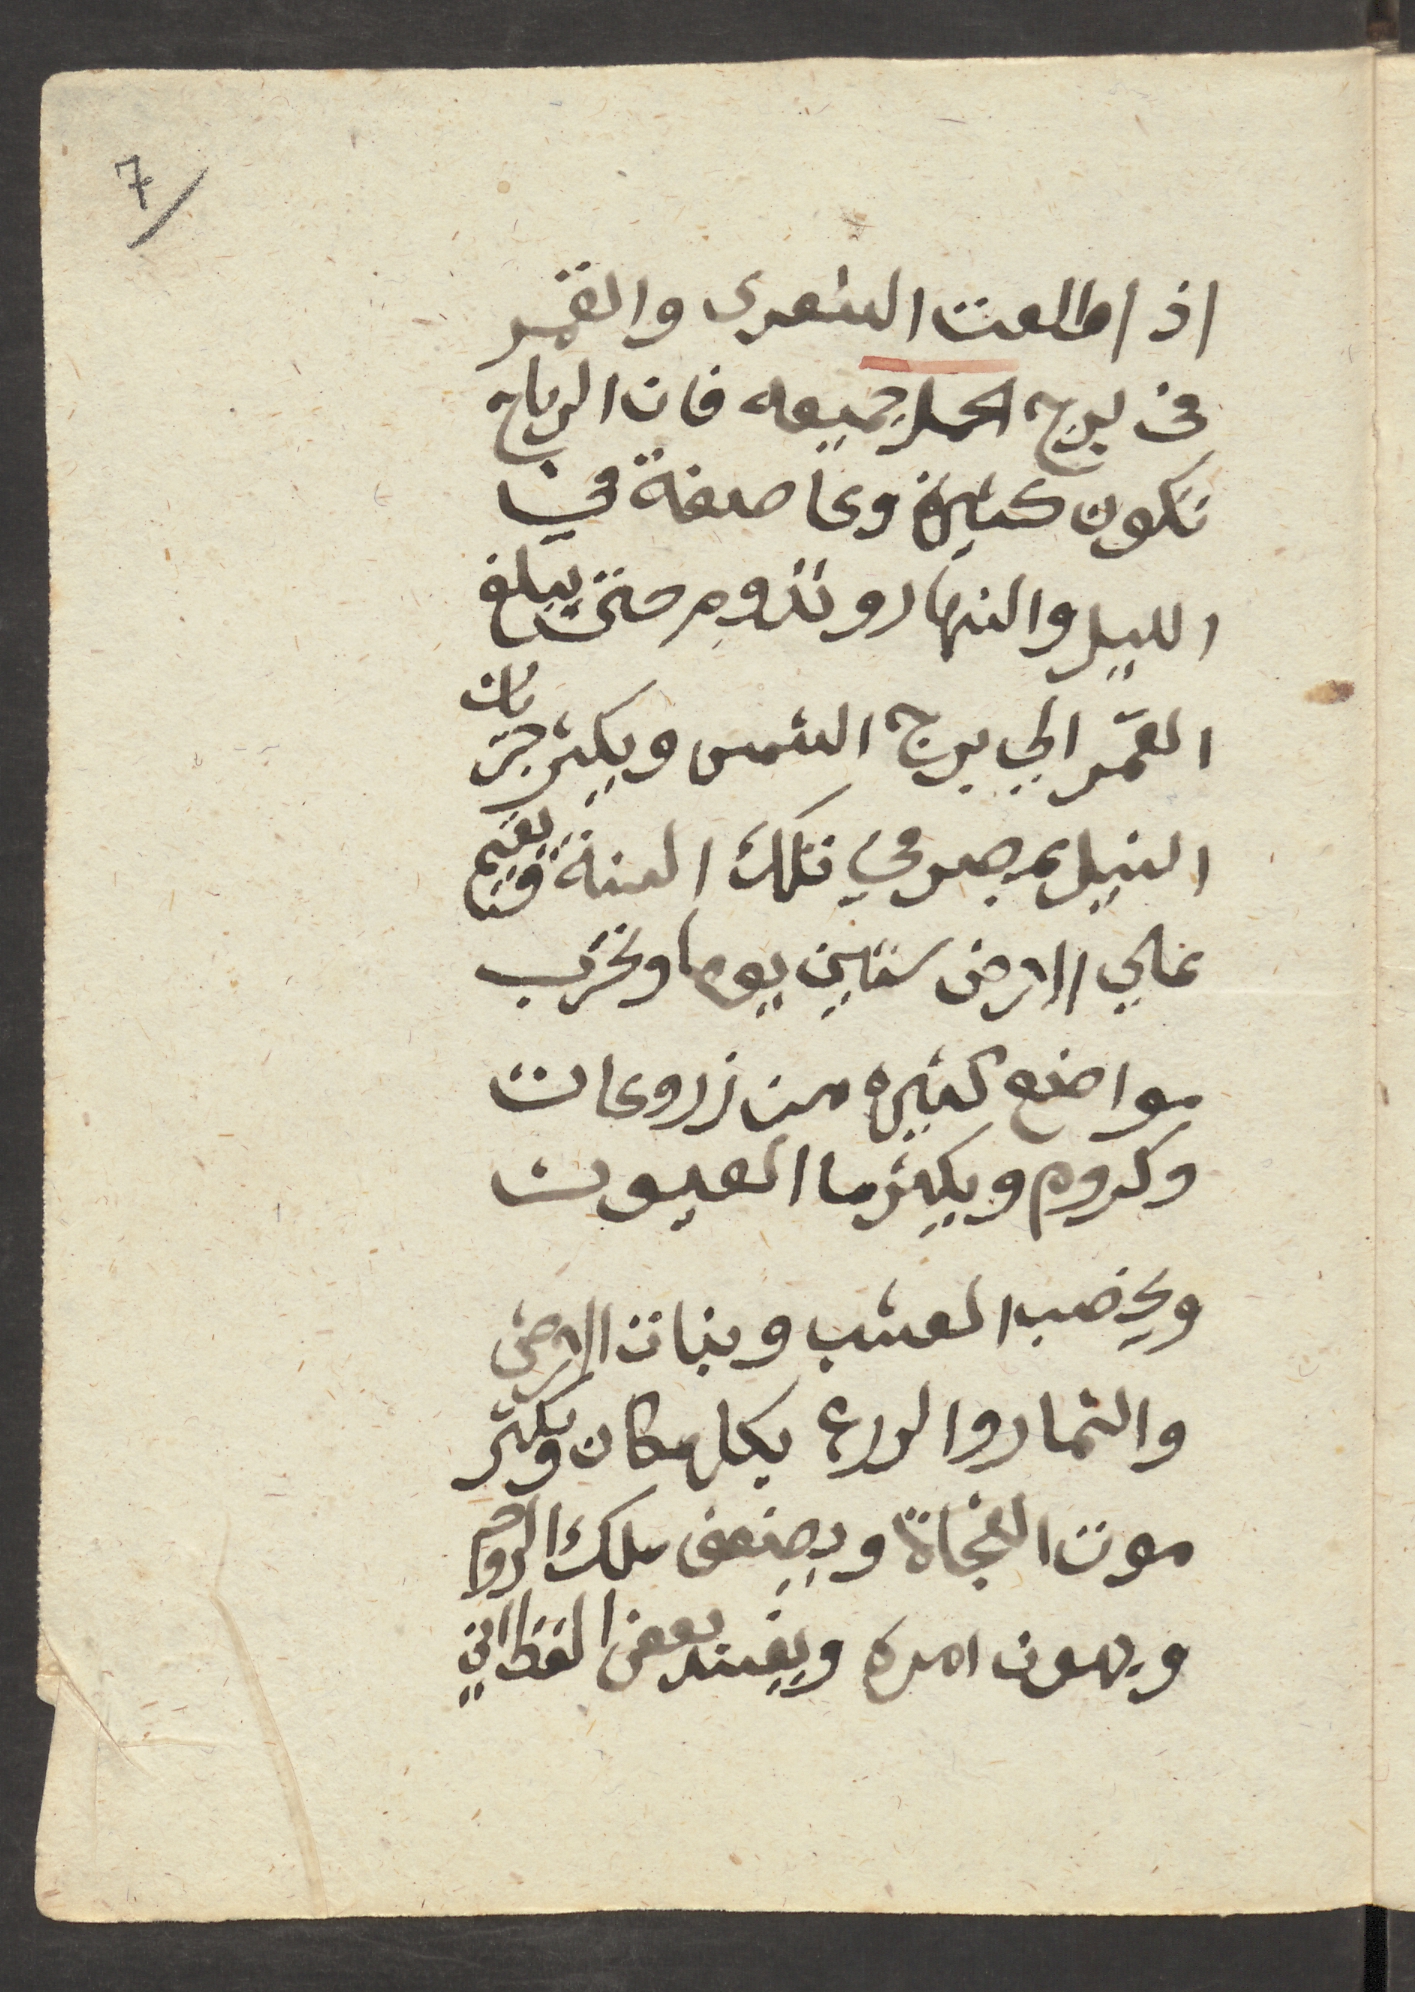 7
اذا طلعت الشعرى والقمر
فى برج الحمل جميعه فان الرياح
تكون كثيرة وعاصفة في
الليل والنهار وتدوم حتى يبلغ
القمر الي برج الشمس ويكثر جريان
النيل بمصر في تلك السنة ويقيم
علي الارض ستين يوما وتخرب
مواضع كثيره من زروعات
وكروم ويكثر ما العيون
ويخصب العشب ونبات الارض
والثمار والزرع بكل مكان ويكثر
موت الفجاة ويضعف ملك الروم
ويهون امره ويفسد بعض القطاني